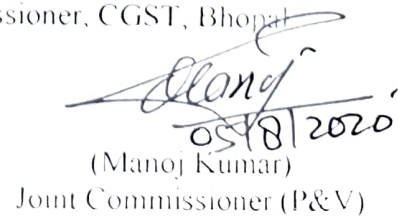 ssioner, CGST, Bhopal
Manoj
05/8/2020
(Manoj Kumar)
Joint Commissioner (P&V)